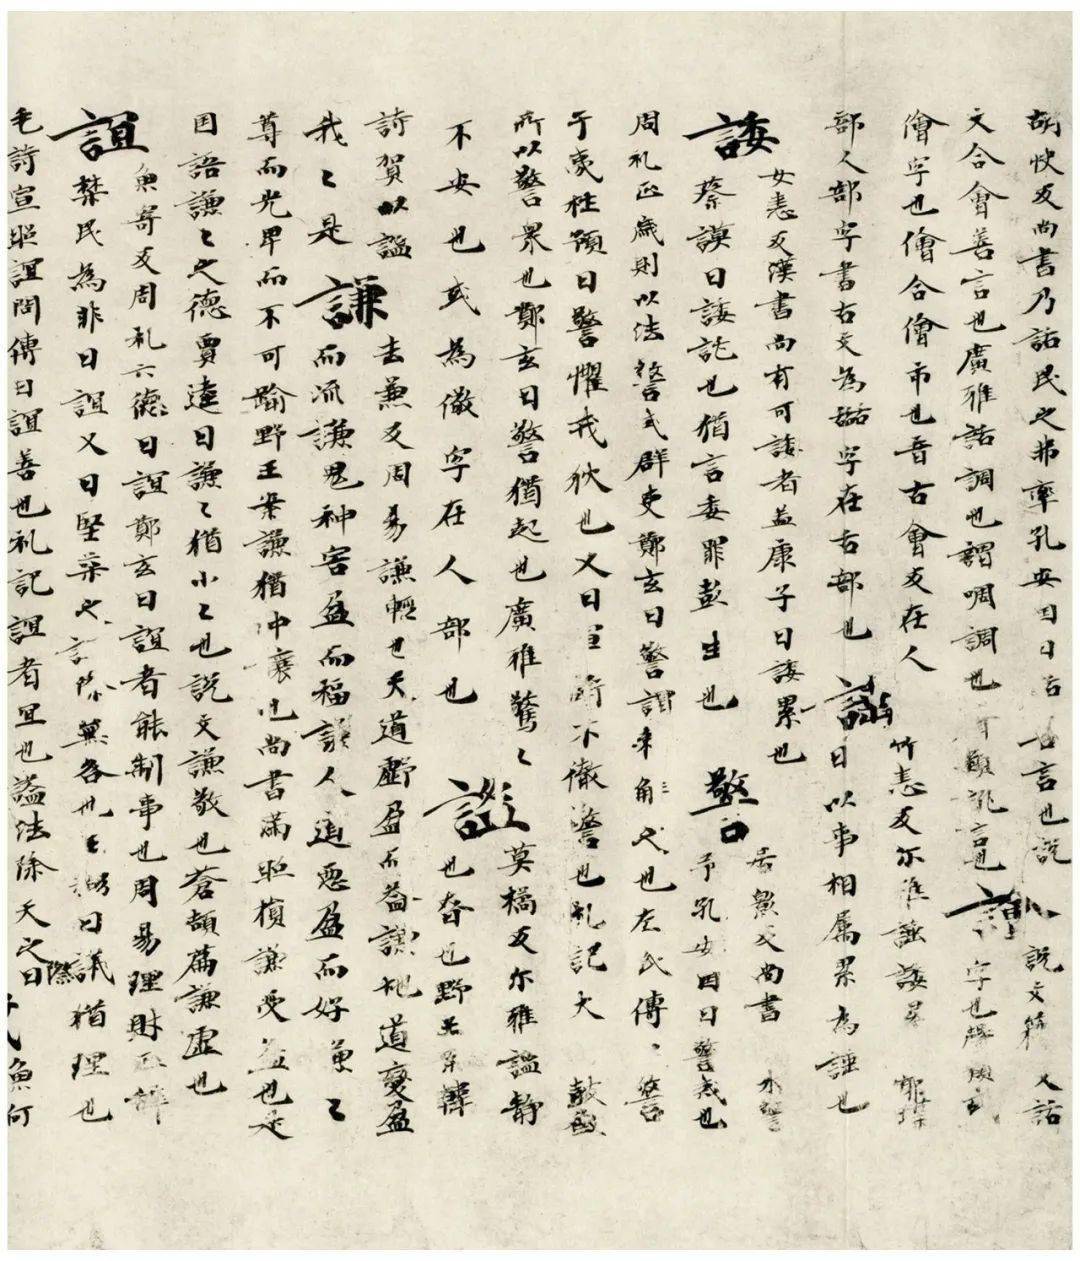 胡快反尚書乃話民之弗率孔安曰話言也說
文合會善言也廣雅話調也謂啁調也
會字也儈合儈市也音古會反在人
部人部字書右文為䛡字在舌部也諈
竹恚反尓雅諈諉
曰以事相属累為諈也
女恚反漢書尚有可諉者孟康子曰諉累也
諉蔡謨曰諉託也猶言委罪彭生也警
居景反尚書
予孔安国曰警戒也
周礼正歲則以法警戒群吏鄭玄曰警謂
也左氏傳
曰警懼戎狄也又曰不儆警也礼記大鼓
所以警衆也鄭玄曰警猶起也廣雅警警
不安也或為儆字在人部也謐
莫橘反尓雅謐静
也育也野王案韓
詩賀以謐
我我是謙去兼反周易謙輕也天道虧盈而益謙地道變盈
而流謙鬼神害盈而福謙人道惡盈而好謙謙
尊而光卑而不可踰野王案謙猶沖讓也尚書滿招損謙受益也是
国語謙謙之德賈逵曰謙謙猶小小也說文謙敬也蒼頡篇謙虛也
誼魚寄反周礼六德曰誼鄭玄曰誼者能制事也周易理財正辞
禁民為非曰誼又曰曰議猶理也
毛詩宣昭誼問傳曰誼善也礼記誼者宜也謚法除天之際曰